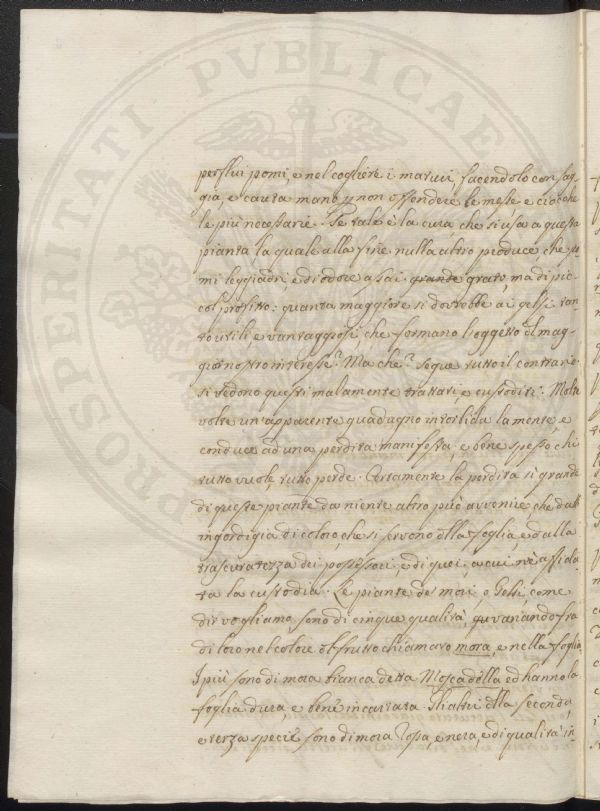 PROSPERITATI PVBLICAE
perflui pomi, e nel cogliere i maturi facendolo con sag-
gia, e cauta mano p non offendere le messe, e ciocche
le più necessarie. Se tale è la cura che si usa a questa
pianta la quale alla fine nulla altro produce, che po-
mi leggiadri, e di odore assai grande grato, ma di pic-
col profitto: quanta maggiore si dovrebbe ai gelsi tan-
to utili e vantaggiosi, che formano l'oggetto del mag-
gior nostro interesse? Ma che? segue tutto il contrario
si vedono questi malamente trattati, e custoditi. Molte
volte un'apparente guadagno intorbida la mente, e
conduce ad una perdita manifesta; e bene spesso chi
tutto vuole, tutto perde. Certamente la perdita si grande
di queste piante da niente altro può avvenire, che dall'
ingordigia di coloro, che si servono della foglia, e dalla
trascuratezza dei possessori, e di quei, a cui n'è affida-
ta la custodia. Le piante de mori, o Gelsi, come
dir vogliamo, sono di cinque qualità, variando fra
di loro nel colore del frutto chiamato mora, e nella foglia.
I più sono di mora bianca detta Moscadella ed hanno la
foglia dura, e bene incartata. Gli altri della seconda,
e terza specie sono di mora rossa, e nera, e di qualità in